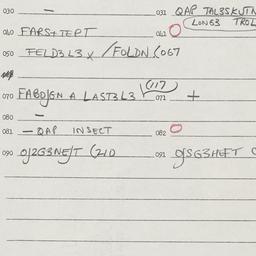 030 — 031 QAP TAL3SKJTN
LONG3 TROL
040 FARS+TEPT 041 O
050 FELD3L3x /FOLDN (067
070 FABOJGN A LAST3L3 (117) 071 +
080 —
081 — QAP INSECT 082 O
090 0J2G3NEJT (210 091 0JSG3HEFT C